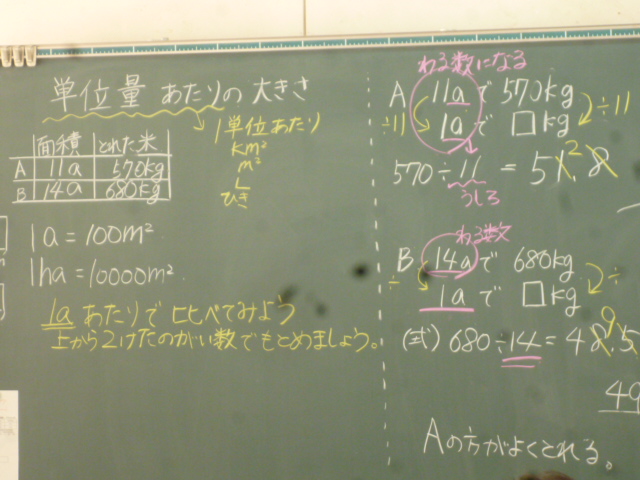 単位量 あたりの大きさ
1単位あたり
km²
m²
L
ひき
面積 とれた米
A 11a 570kg
B 14a 680kg
1a=100m²
1ha=10000m²
1aあたりで比べてみよう
上から2けたのがい数でもとめましょう。
わる数になる
A 11aで 570kg
÷11 ÷11
1aで □kg
570÷11=51.8
2
うしろ
わる数
B 14aで 680kg
÷ ÷
1aで □kg
9
(式) 680÷14=48.5
49
Aの方がよくとれる。